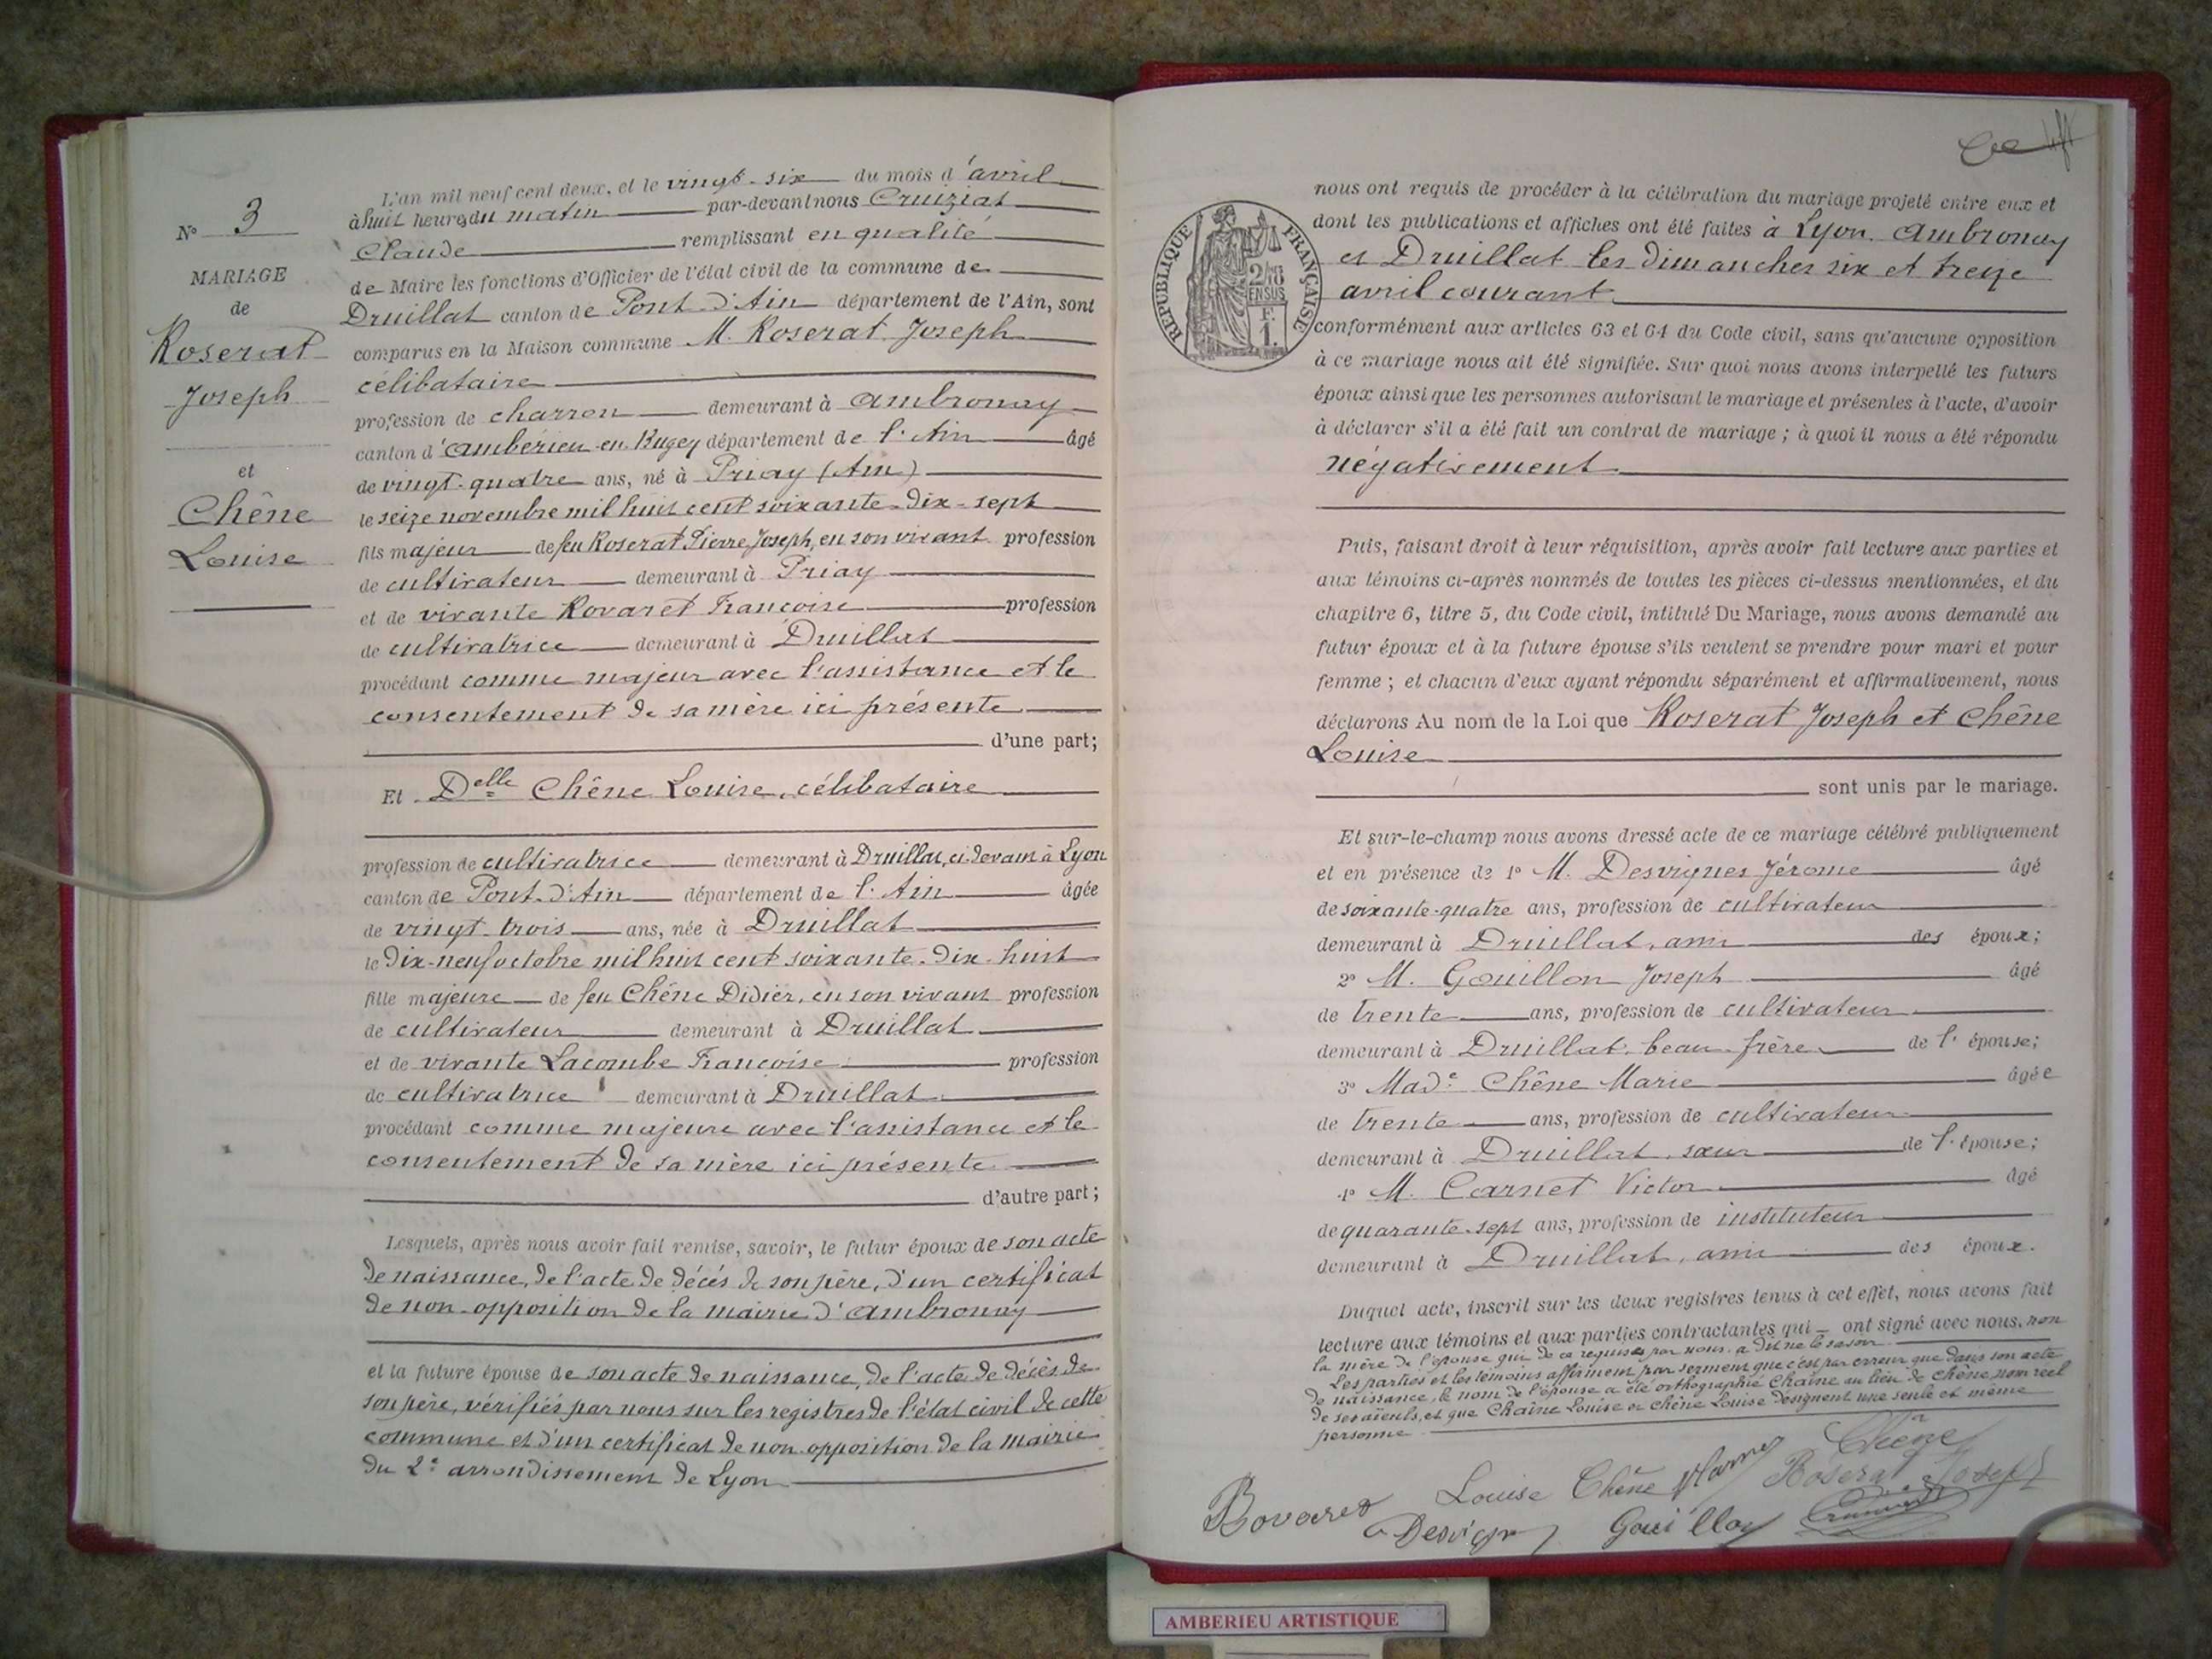 N° 3
MARIAGE
de
Roserat
Joseph
et
Chêne
Louise
L'an mil neuf cent deux, et le vingt-six du mois d'avril
à huit heures du matin par-devant nous Cruiziat
Claude remplissant en qualité
de Maire les fonctions d'Officier de l'état civil de la commune de
Druillat canton de Pont-d'Ain département de l'Ain, sont
comparus en la Maison commune M. Roserat Joseph
célibataire
profession de charron demeurant à Ambronay
canton d'Ambérieu-en-Bugey département de l'Ain âgé
de vingt-quatre ans, né à Priay (Ain)
le seize novembre mil huit cent soixante-dix-sept
fils majeur de feu Roserat Pierre Joseph, en son vivant profession
de cultivateur demeurant à Priay
et de vivante Bovaret Françoise profession
de cultivatrice demeurant à Druillat
procédant comme majeur avec l'assistance et le
consentement de sa mère ici présente
d'une part;
Et Delle Chêne Louise, célibataire
profession de cultivatrice demeurant à Druillat, ci-devant à Lyon
canton de Pont-d'Ain département de l'Ain âgée
de vingt-trois ans, née à Druillat
le dix-neuf octobre mil huit cent soixante-dix-huit
fille majeure de feu Chêne Didier, en son vivant profession
de cultivateur demeurant à Druillat
et de vivante Lacombe Françoise profession
de cultivatrice demeurant à Druillat
procédant comme majeure avec l'assistance et le
consentement de sa mère ici présente
d'autre part;
Lesquels, après nous avoir fait remise, savoir, le futur époux de son acte
de naissance, de l'acte de décès de son père, d'un certificat
de non-opposition de la mairie d'Ambronay
et la future épouse de son acte de naissance, de l'acte de décès de
son père, vérifiés par nous sur les registres de l'état civil de cette
commune et d'un certificat de non-opposition de la mairie
du 2e arrondissement de Lyon
RÉPUBLIQUE FRANÇAISE
nous ont requis de procéder à la célébration du mariage projeté entre eux et
dont les publications et affiches ont été faites à Lyon, Ambronay
et Druillat les dimanches six et treize
avril courant
conformément aux articles 63 et 64 du Code civil, sans qu'aucune opposition
à ce mariage nous ait été signifiée. Sur quoi nous avons interpellé les futurs
époux ainsi que les personnes autorisant le mariage et présentes à l'acte, d'avoir
à déclarer s'il a été fait un contrat de mariage; à quoi il nous a été répondu
négativement
Puis, faisant droit à leur réquisition, après avoir fait lecture aux parties et
aux témoins ci-après nommés de toutes les pièces ci-dessus mentionnées, et du
chapitre 6, titre 5, du Code civil, intitulé Du Mariage, nous avons demandé au
futur époux et à la future épouse s'ils veulent se prendre pour mari et pour
femme; et chacun d'eux ayant répondu séparément et affirmativement, nous
déclarons Au nom de la Loi que Roserat Joseph et Chêne
Louise
sont unis par le mariage.
Et sur-le-champ nous avons dressé acte de ce mariage célébré publiquement
et en présence de 1° M. Desvignes Jérome âgé
de soixante-quatre ans, profession de cultivateur
demeurant à Druillat, ami des époux;
2° M. Gouillon Joseph âgé
de trente ans, profession de cultivateur
demeurant à Druillat, beau-frère de l'épouse;
3° Made Chêne Marie âgée
de trente ans, profession de cultivateur
demeurant à Druillat, sœur de l'épouse;
4° M. Carnet Victor âgé
de quarante-sept ans, profession de instituteur
demeurant à Druillat, ami des époux.
Duquel acte, inscrit sur les deux registres tenus à cet effet, nous avons fait
lecture aux témoins et aux parties contractantes qui ont signé avec nous, non
la mère de l'épouse qui de ce requise par nous a dit ne le savoir
Les parties et les témoins affirment par serment que c'est par erreur que dans son acte
de naissance, le nom de l'épouse a été orthographié Chaîne au lieu de Chêne, nom réel
de ses aïeuls, et que Chaîne Louise et Chêne Louise désignent une seule et même
personne
Bovaret Louise Chêne Marie Chêne
Roserat Joseph
Desvignes Gouillon
AMBERIEU ARTISTIQUE